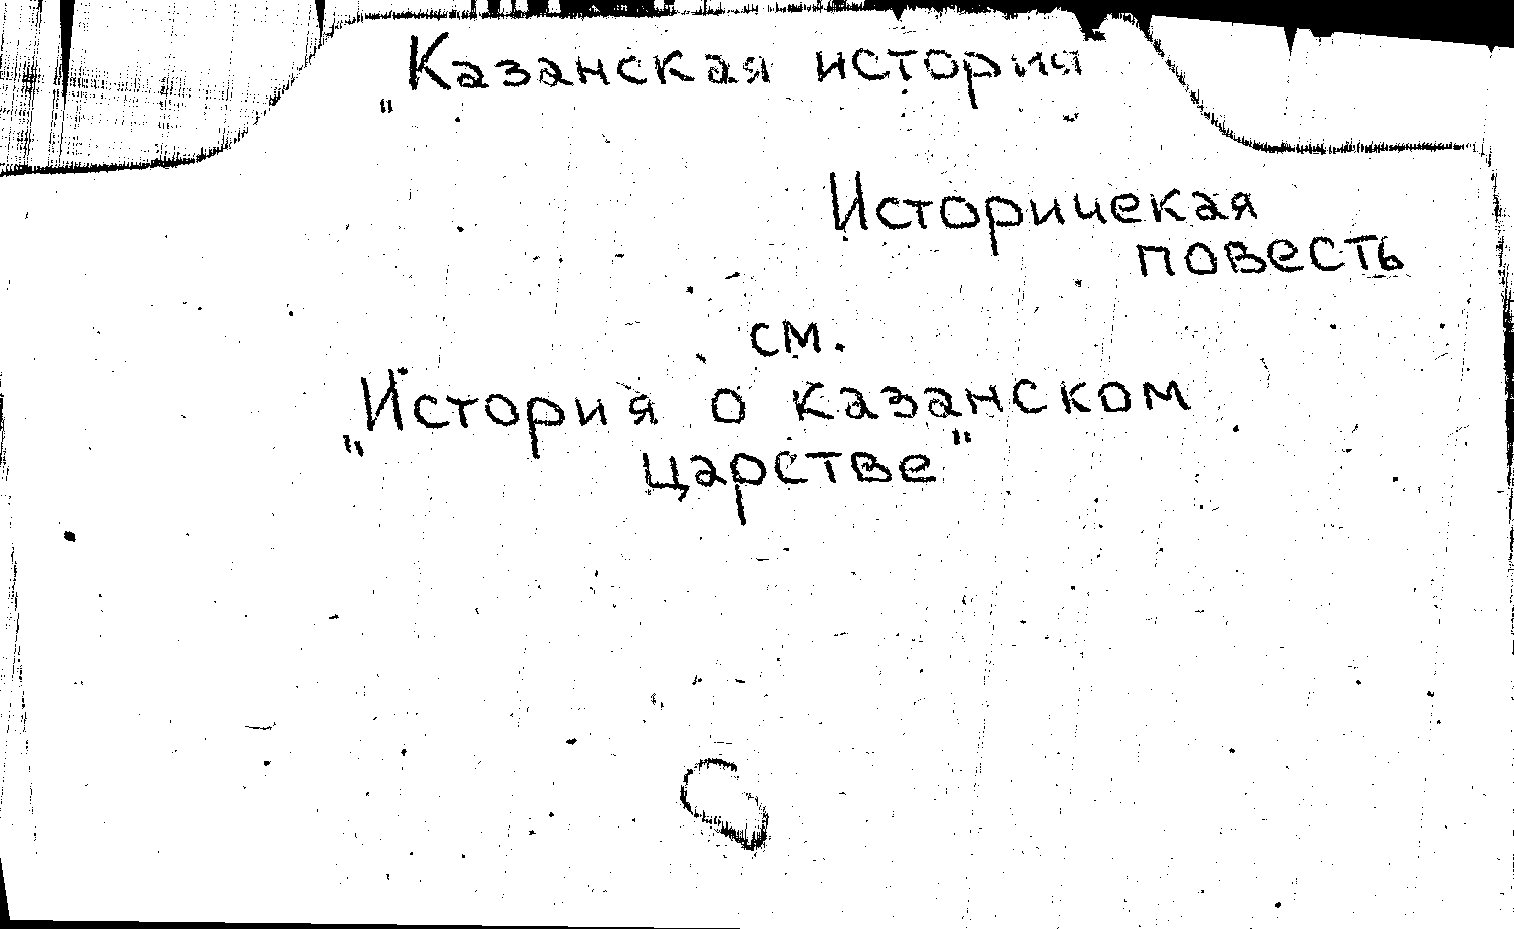 „Казанская история
Историчекая
повесть
см.
„История о казанском
царстве"